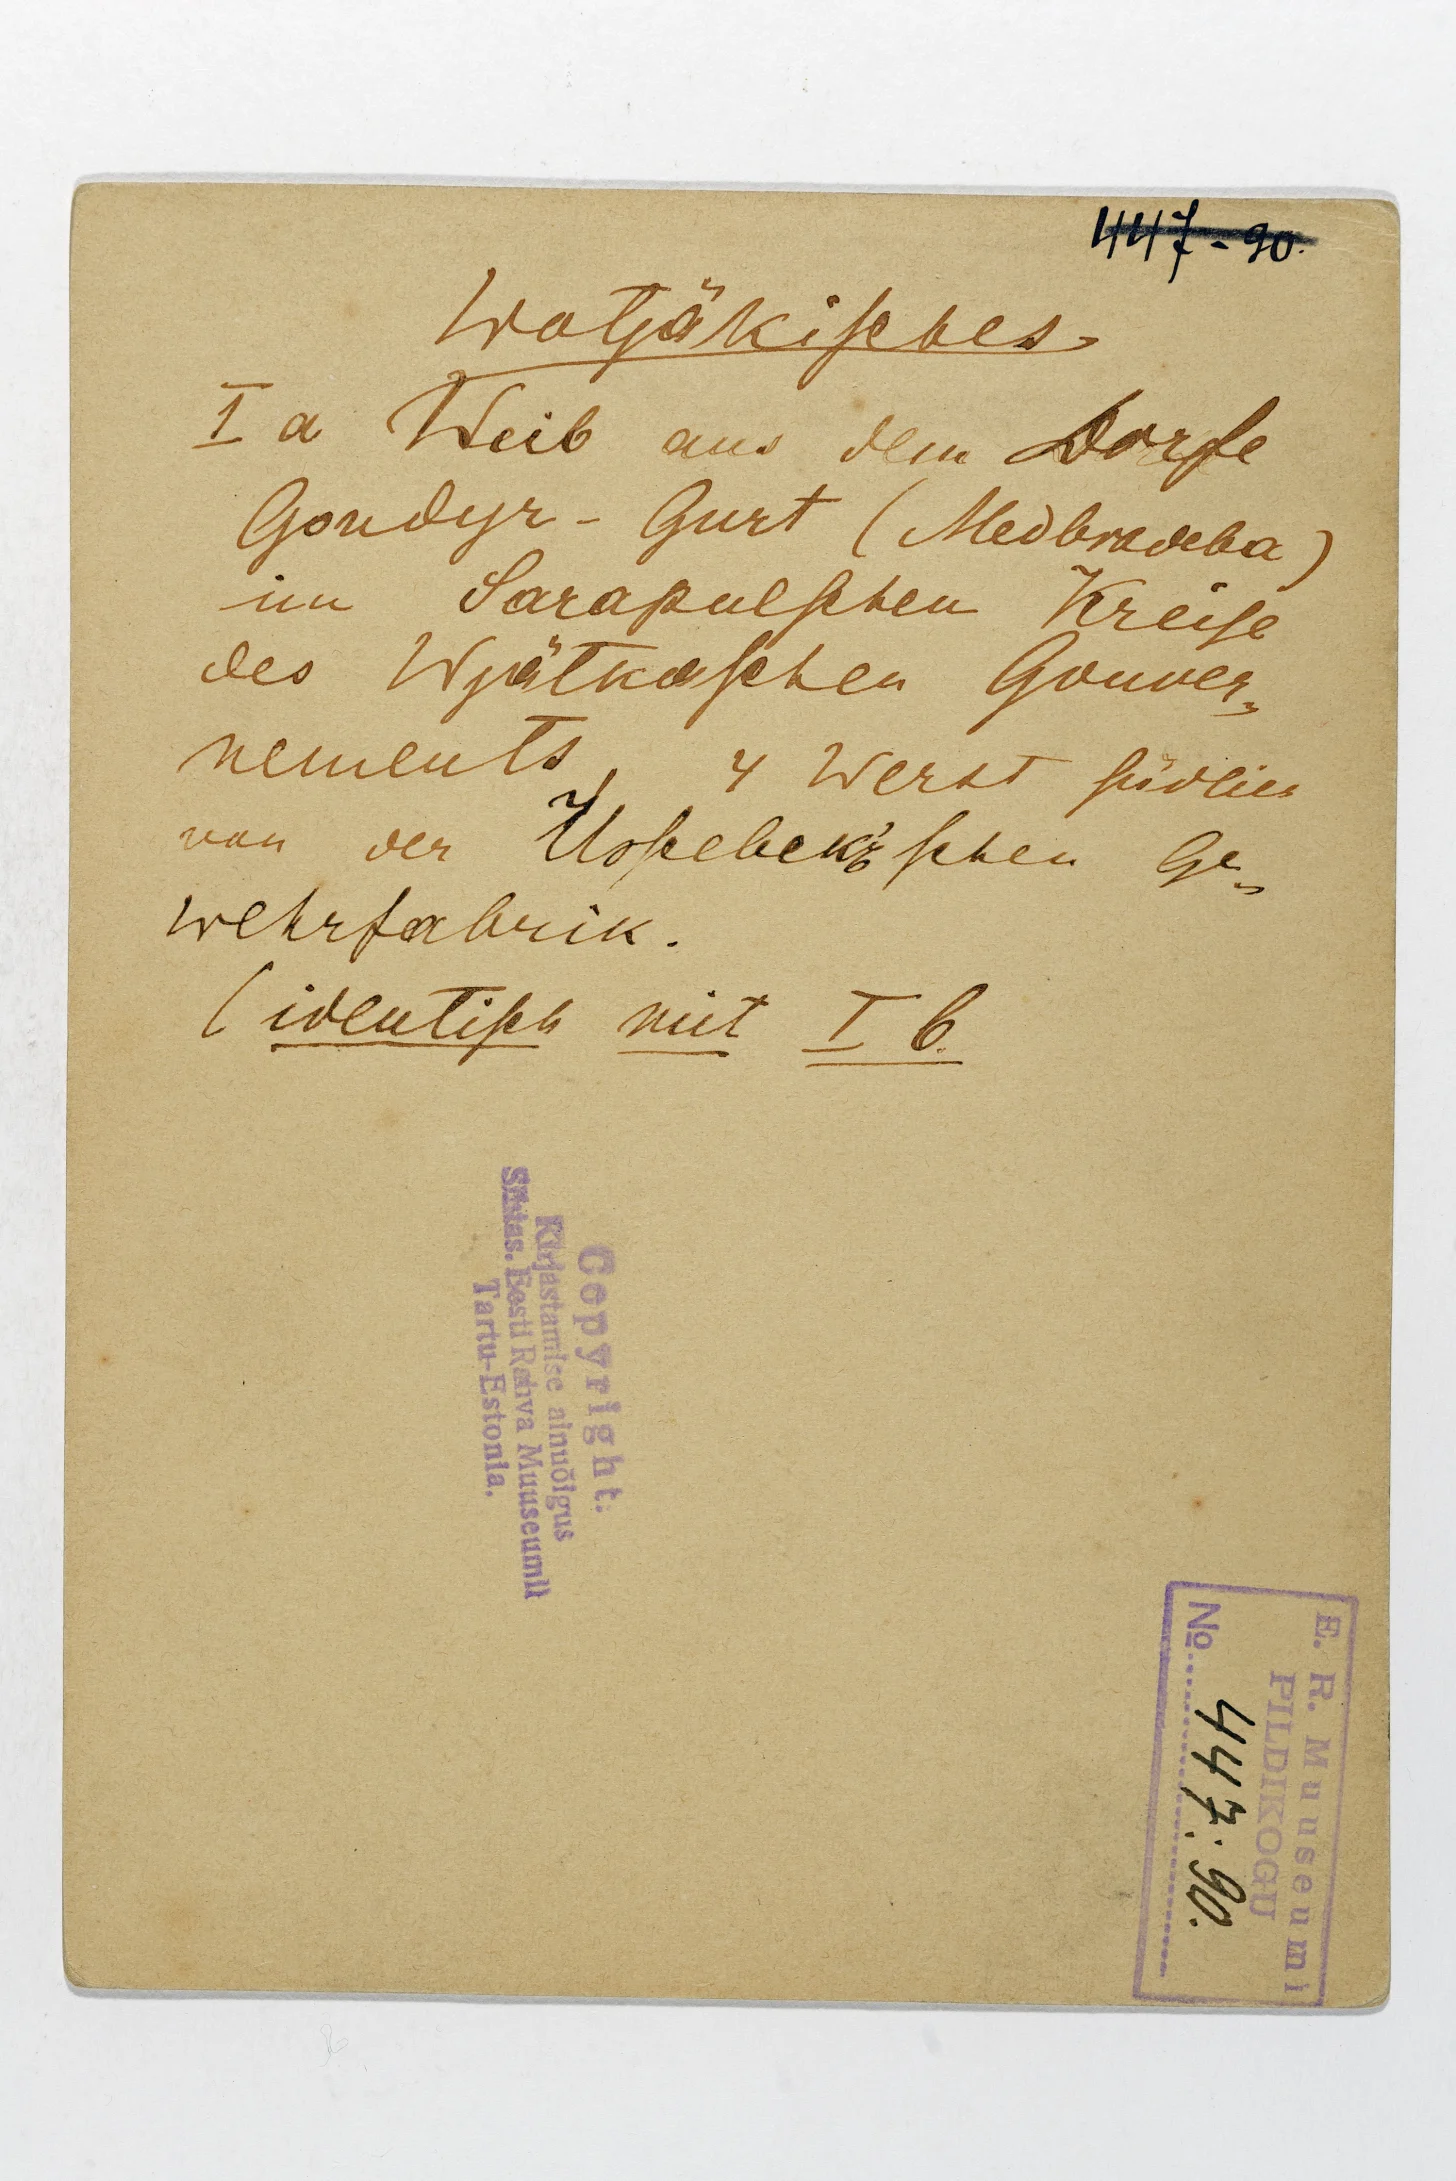 447-90.
Wotjäkisches
I a Weib aus dem Dorfe
Gondyr - Gurt (
im Sarapulschen Kreise
des Wjätkaschen Gouver-
nements, 4 Werst südlich
von der Ge-
wehrfabrik.
(identisch mit I b.
Copyright:
Kirjastamise ainuõigus
Eesti Rahva Muuseumil
Tartu-Estonia.
E. R. Muuseumi
PILDIKOGU
No 447:90.